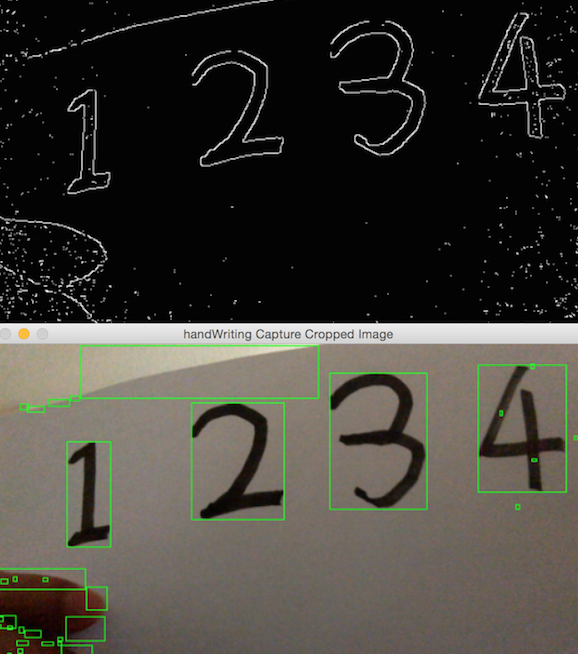 1 2 3 4
handWriting Capture Cropped Image
1 2 3 4